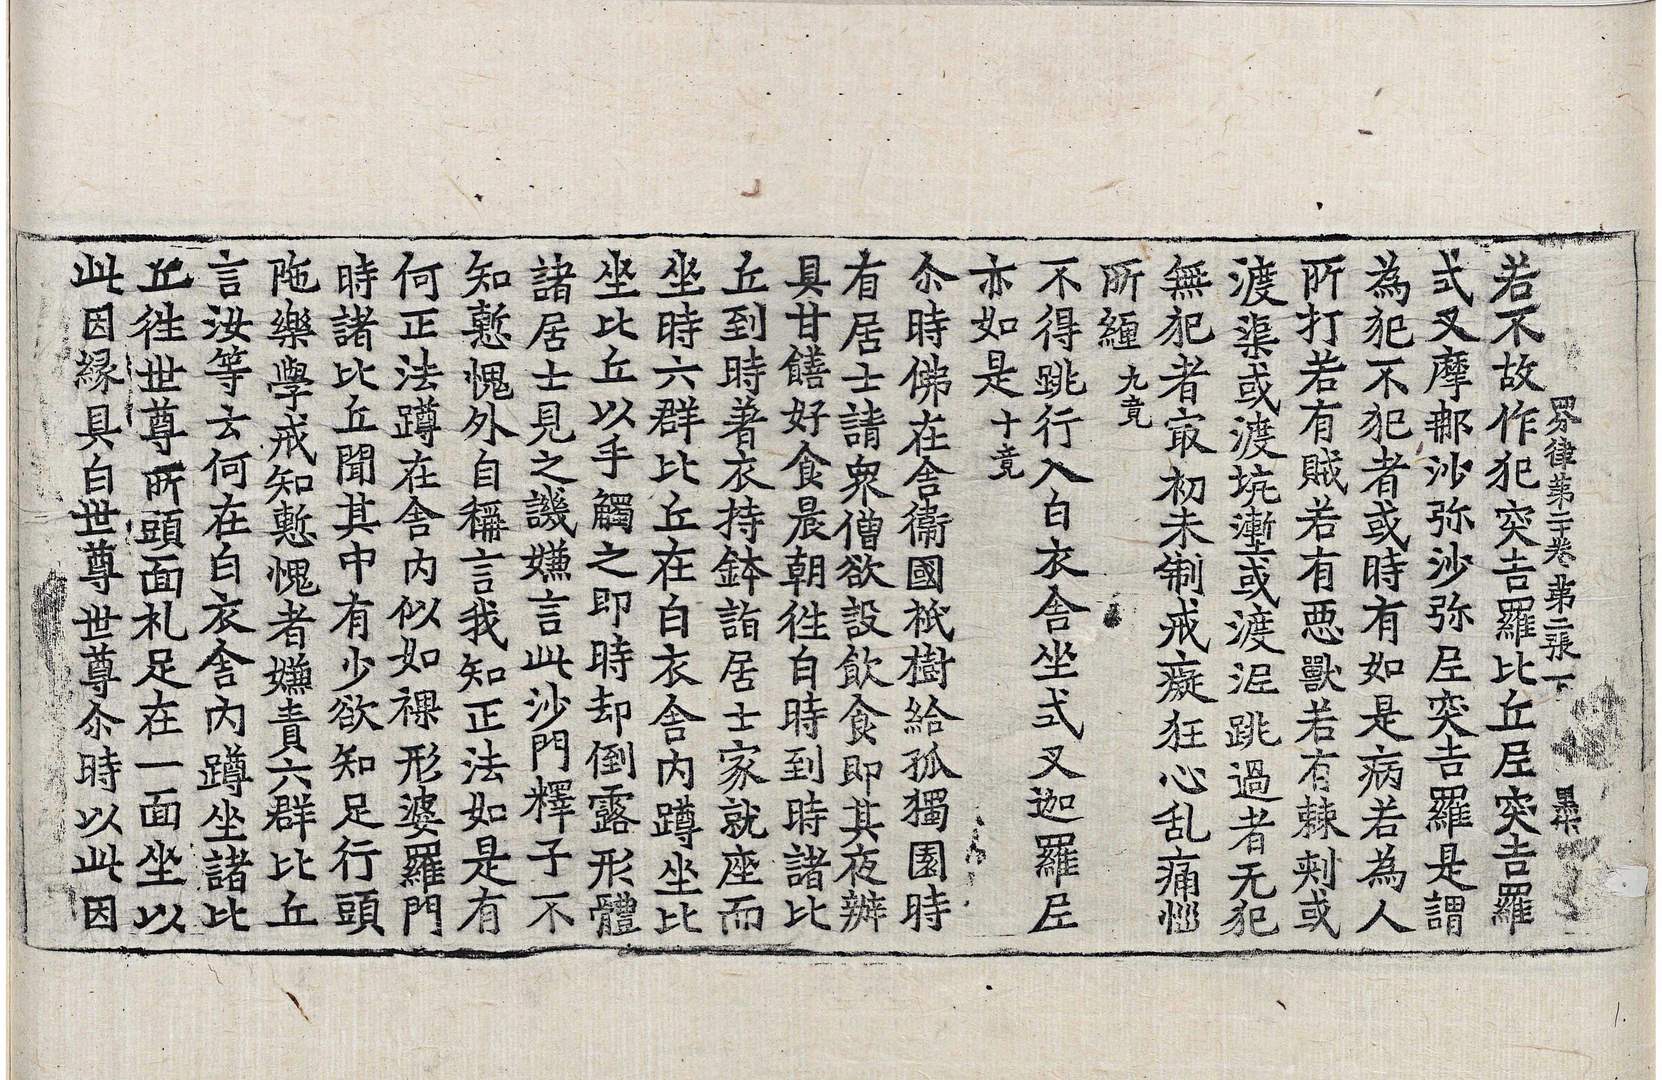 四分律第二十卷 第二張 下
若不故作犯突吉羅比丘尼突吉羅
式叉摩那沙弥沙弥尼突吉羅是謂
為犯不犯者或時有如是病若為人
所打若有賊若有悪獸若有棘刾或
渡渠或渡坑壍或渡泥跳過者无犯
無犯者㝡初未制戒癡狂心乱痛惱
所纏 九竟
不得跳行入白衣舍坐式叉迦羅尼
亦如是 十竟
尒時佛在舍衞國祇樹給孤獨園時
有居士請衆僧欲設飲食即其夜辦
具甘饍好食晨朝徃白時到時諸比
丘到時著衣持鉢詣居士家就座而
坐時六群比丘在白衣舍內蹲坐比
坐比丘以手觸之即時却倒露形體
諸居士見之譏嫌言此沙門釋子不
知慙愧外自稱言我知正法如是有
何正法蹲在舍內似如裸形婆羅門
時諸比丘聞其中有少欲知足行頭
陁樂學戒知慙愧者嫌責六群比丘
言汝等云何在白衣舍內蹲坐諸比
丘徃世尊所頭面礼足在一面坐以
此因緣具白世尊世尊尒時以此因